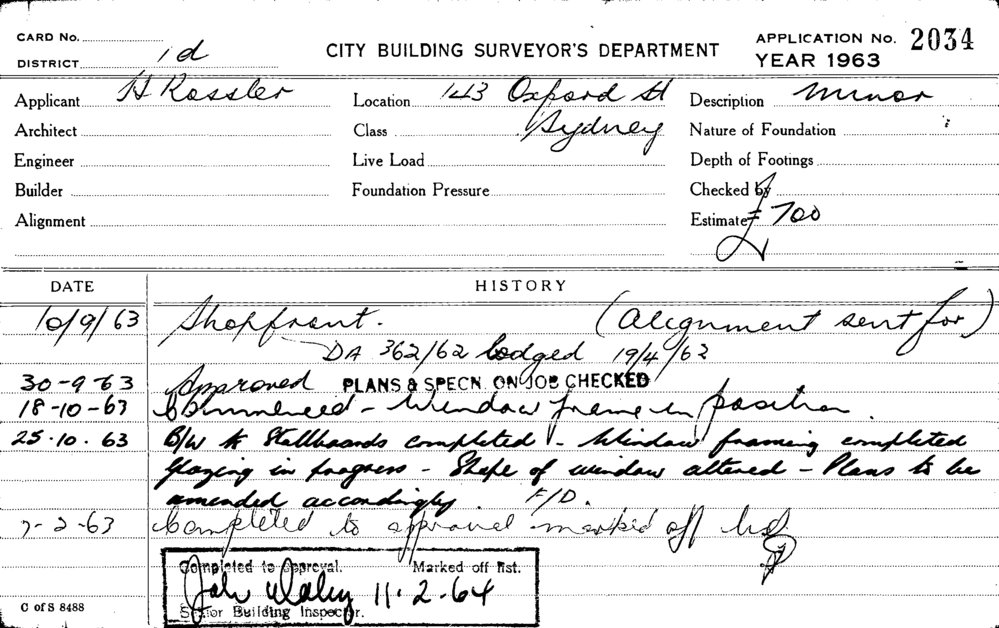 CARD No.
DISTRICT 1d
CITY BUILDING SURVEYOR'S DEPARTMENT
APPLICATION No. 2034
YEAR 1963
Applicant H Rossler Location 143 Oxford St Description Minor
Architect Class Sydney Nature of Foundation
Engineer Live Load Depth of Footings
Builder Foundation Pressure Checked by
Alignment Estimate £700
DATE HISTORY
10/9/63 Shopfront. (Alignment sent for)
DA 362/62 lodged 19/4/62
30-9-63 Approved PLANS & SPECN. ON JOB CHECKED
18-10-63 Commenced - Window frame in position.
25.10.63 B/w to Stallboards completed - Window framing completed
Glazing in progress - Shape of window altered - Plans to be
amended accordingly. F/D.
7-2-63 Completed to approval marked off list
Completed to approval. Marked off list.
11.2.64
Senior Building Inspector.
C of S 8488